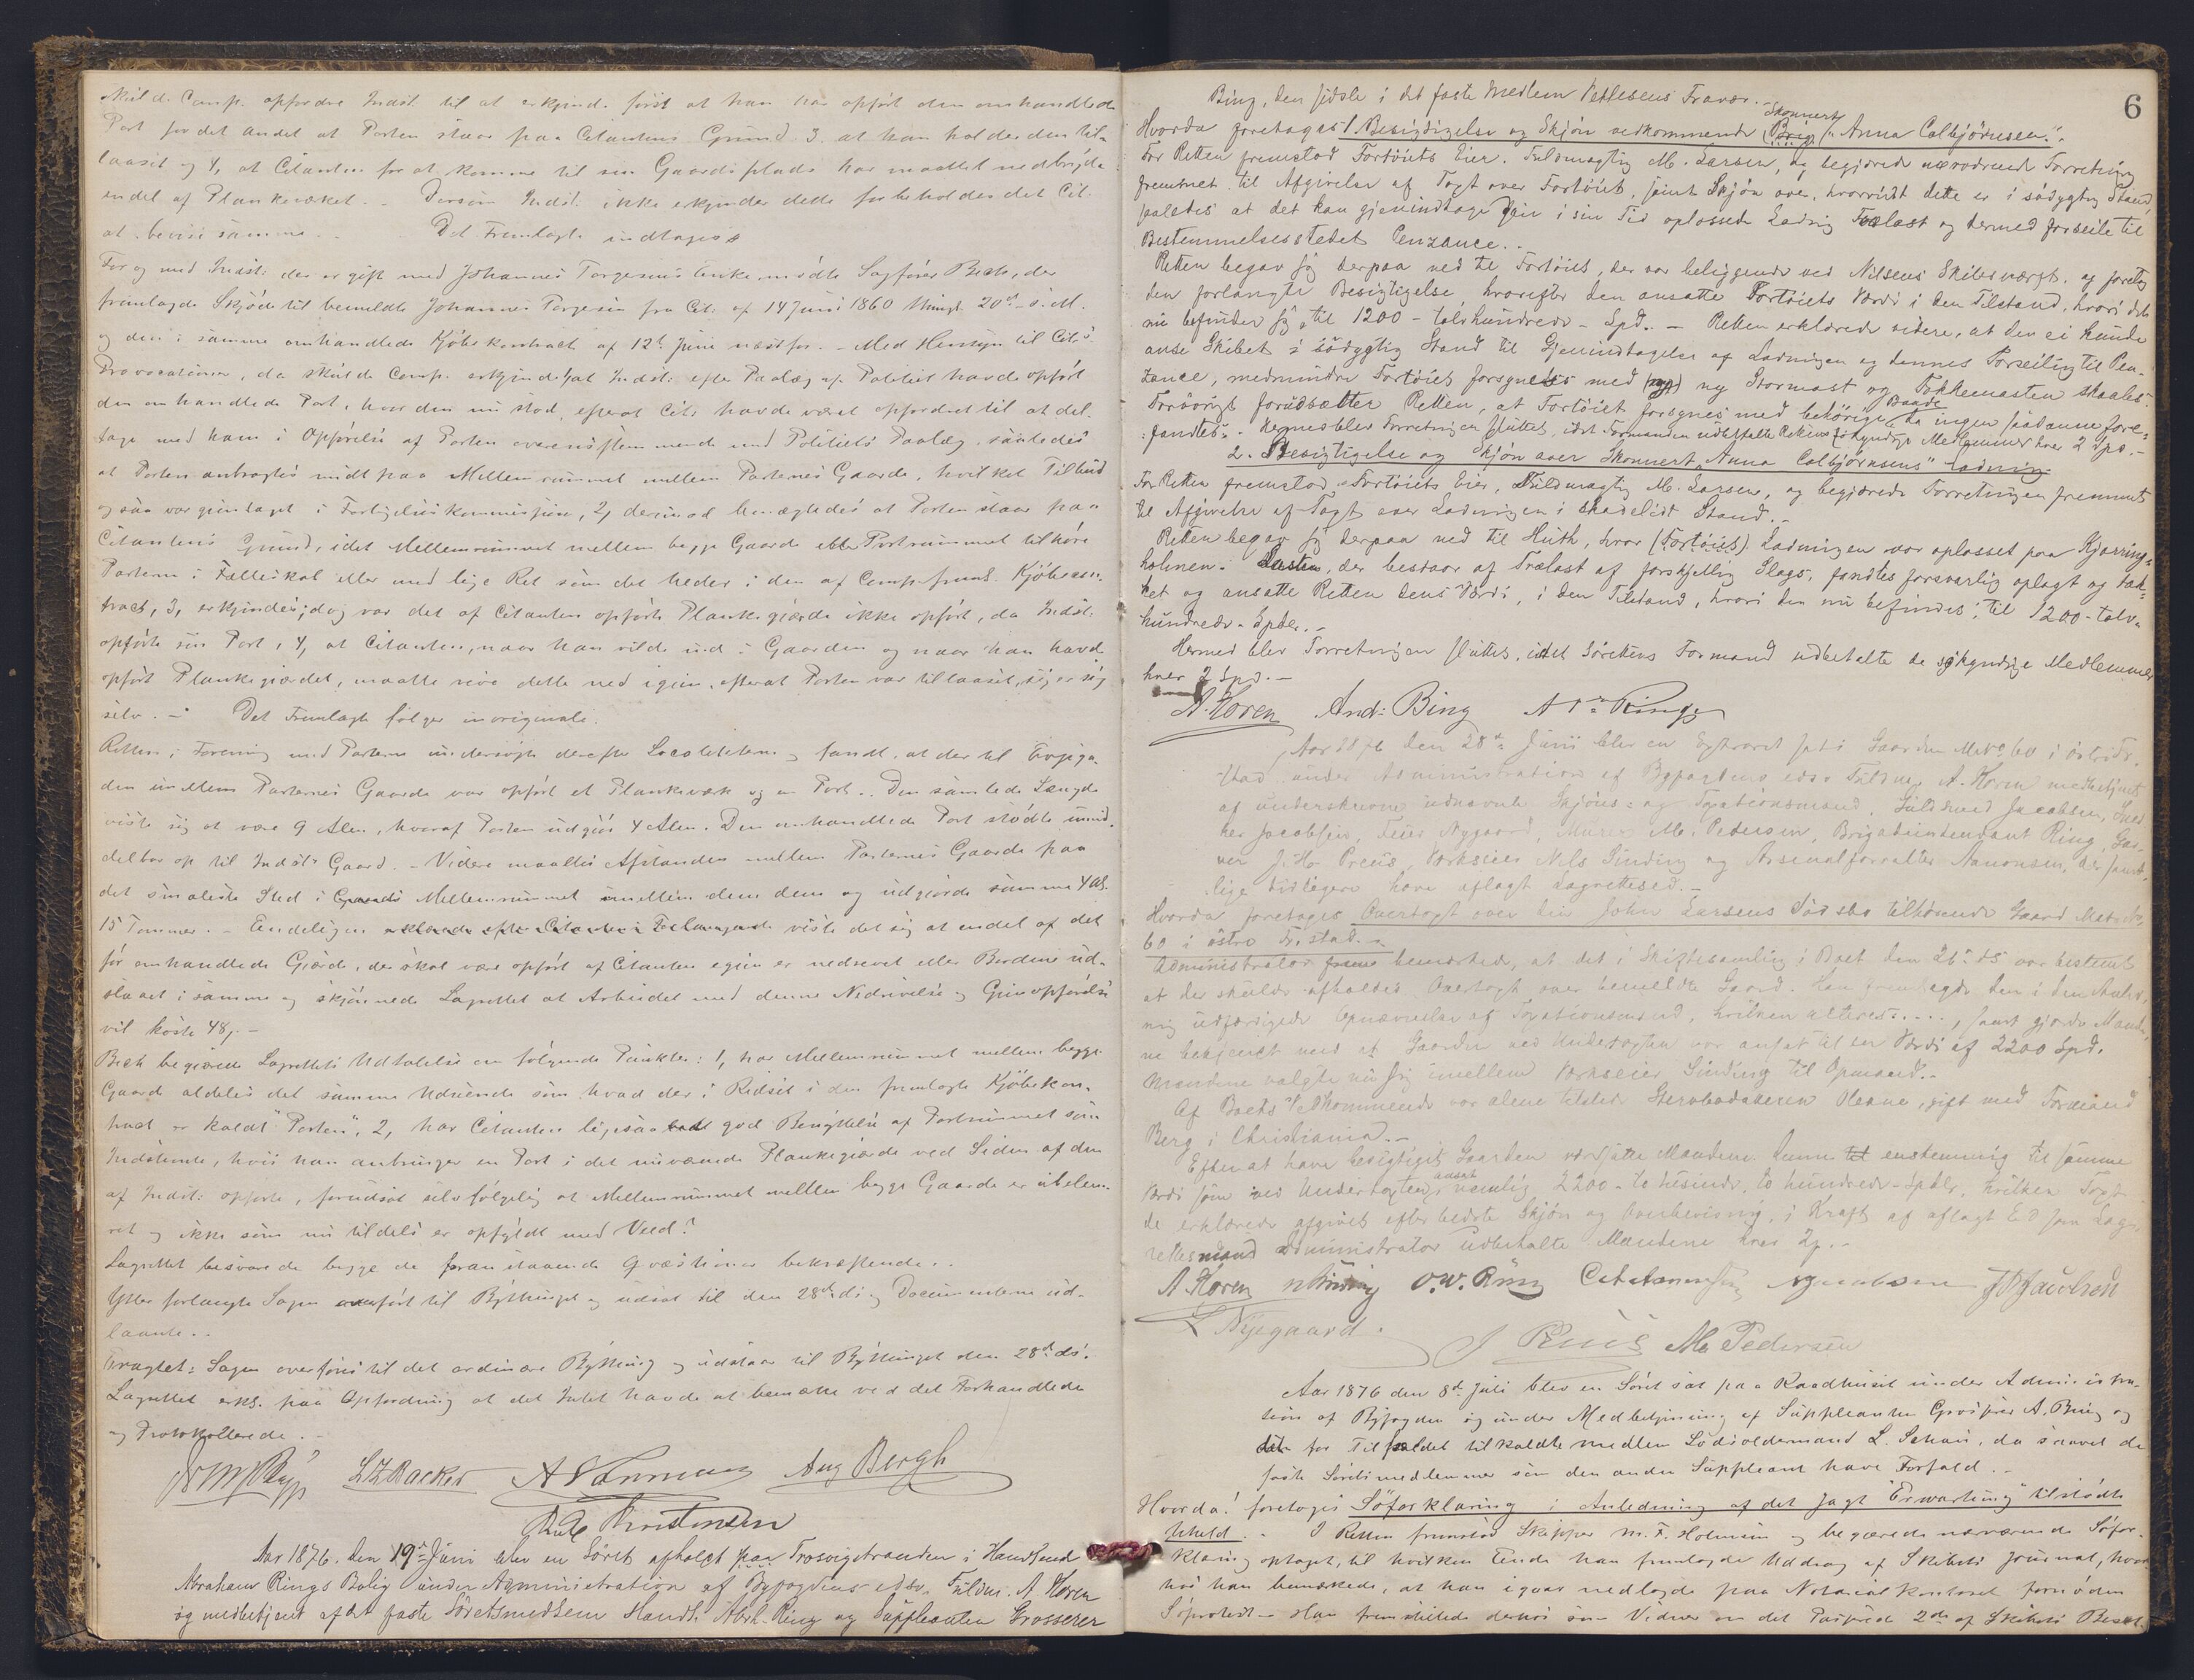 Comp. opfordre Indst. til at erkjende først at han har opført den omhandlede
Port for det andet at Porten staar paa Citantens Grund 3. at han holder den til-
laaset og 4, at Citanten for at komme til sin Gaardsplads har maattet nedbryde
endel af Plankeværket. - Dersom Indst. ikke erkjender dette forbeholder det Cit.
at bevise samme. - Det Fremlagte indtages
For og med Indst. der er gift med Johannes Torgersens Enke, mødte Sagfører Bech, der
fremlagde Skjøde til bemeldte Johannes Torgersen fra Cit. af 14 Juni 1860 thingl. 20de s. M.
og den i samme omhandlede Kjøbekontrakt af 12te Juni næstfor. - Med Hensyn til Cits
Provocationer, da skulde Comp. erkjende at Indst. efter Paalæg af Politiet havde opført
den omhandlede Port, hvor den nu stod, efterat Cit. havde været opfordret til at del-
tage med ham i Opførelse af Porten overensstemmende med Politiets Paalæg saaledes
at Porten anbragtes midt paa Mellemrummet mellem Parternes Gaarde, hvilket Tilbud
ogsaa var gjentaget i Forligelseskommissionen, 2, derimod benægtedes at Porten staar paa
Citantens Grund, idet Mellemrummet mellem begge Gaarde eller Portrummet tilhøre
Parterne i Fælleskab eller med lige Ret som det heder i den af Comp. freml. Kjøbecon-
tract, 3, erkjendes; dog var det af Citanten opførte Plankegjærde ikke opført, da Indst.
opførte sin Port, 4, at Citanten, naar han vilde ind i Gaarden og naar han havde
opført Plankegjærdet, maatte rive dette ned igjen, efterat Porten var tillaaset, siger sig
selv. - Det Fremlagte følger in originali.
Retten i Forening med Parterne undersøgte derefter Localiteterne og fandt, at der til
den imellem Parternes Gaarde var opført et Plankeværk og en Port. Den samlede Længde
viste sig at være 9 Alen, hvoraf Porten udgjør 4 Alen. Den omhandlede Port stødte umid-
delbar op til Indsts Gaard. - Videre maaltes Afstanden mellem Parternes Gaarde paa
det smaleste Sted i Mellemrummet imellem dem og udgjorde samme 4 Al.
15 Tommer. - Endeligen viste det sig at endel af det
før omhandlede Gjærde, der skal være opført af Citanten igjen er nedrevet eller Bordene ud-
slaaet i samme og skjønnede Lagrettet at Arbeidet med denne Nedrivelse og Gjenopførelse
vil koste 48,-
Bech begjærede Lagrettets Udtalelse om følgende Punkter: 1, har Mellemrummet mellem begge
Gaarde aldeles det samme Udseende som hvad der i Ridset i den fremlagte Kjøbekon-
tract er kaldt "Porten", 2, har Citanten ligesaa god Benyttelse af Portrummet som
Indstevnte, hvis han anbringer en Port i det nuværende Plankegjærde ved Siden af den
af Indst. opførte, forudsat selvfølgelig at Mellemrummet mellem begge Gaarde er
og ikke som nu tildels er opfyldt med Veed?
Lagrettet besvarede begge de foranstaaende Qvæstioner bekræftende. -
forlangte Sagen overført til Bythinget og udsat til den 28de ds og Documenterne ud-
laante. -
Eragtet: Sagen overføres til det ordinære Bything og udstaar til Bythinget den 28de ds.
Lagrettet erkl. paa Opfordring at det Intet havde at bemærke ved det Forhandlede
og Protokollerede. -
Backer Aug Bergh
Aar 1876 den 19de Juni blev en Søret afholdt paa Trosvigstranden i Handlende
Abraham Rings Bolig under Administration af Bypogdens edsv. Fuldm. A. Horen
og medbetjent af det faste Søretsmedlem Handl. Abrh. Ring og Suppleanten Grosserer
6
Bing, den sidste i det faste Medlem Vetlesens Fravær. -
Skonnert
Hvorda foretages 1. Besigtigelse og Skjøn vedkommende (Brig) "Anna Colbjørnsen".
For Retten fremstod Fortøiets Eier, Fuldmægtig M. Larsen, og begjærede nærværende Forretning
fremmet til Afgivelse af Taxt over Fortøiet, samt Skjøn over, hvorvidt dette er i sødygtig Stand,
saaledes at det kan gjenindtage sin i sin Tid oplossede Ladning Trælast og dermed forseile til
Bestemmelsesstedet Penzance. -
Retten begav sig derpaa ned til Fortøiet, der var beliggende ved Nilsens Skibsværft, og foretog
den forlangte Besigtigelse, hvorefter den ansatte Fortøiets Værdi i den Tilstand, hvori det
nu befinder sig, til 1200 - tolvhundrede - Spd. - Retten erklærede videre, at den ei kunde
anse Skibet i sødygtig Stand til Gjenindtagelse af Ladningen og dennes Forseiling til Pen-
zance, medmindre Fortøiet forsynedes med (ny) ny Stormast og Fokkemasten skaales.
Baade
Forøvrigt forudsætter Retten, at Fortøiet forsynes med behørige da ingen saadanne fore-
fandtes. - Hermed blev Forretningen sluttet, idet Formanden udbetalte Rettens søkyndige Medlemmer hver 2 Spd. -
2. Besigtigelse og Skjøn over Skonnert "Anna Colbjørnsens" Ladning
For Retten fremstod Fortøiets Eier, Fuldmægtig M. Larsen, og begjærede Forretningen fremmet
til Afgivelse af Taxt over Ladningen i skadelidt Stand. -
Retten begav sig derpaa ned til Huth, hvor (Fortøiet) Ladningen var oplosset paa Kjærring-
holmen. Lasten, der bestaar af Trælast af forskjellig Slags, fandtes forsvarlig oplagt og
og ansatte Retten dens Værdi, i den Tilstand, hvori den nu befindes, til 1200 - tolv-
hundrede - Spdlr. -
Hermed blev Forretningen sluttet, idet Sørettens Formand udbetalte de søkyndige Medlemmer
hver 2 Spd. -
A. Horen And: Bing A Ring
Aar 1876 den 28de Juni blev en Extraret sat i Gaarden Mat. No 60 i østre Fr.
stad under Administration af Bypogdens edsv Fuldm. A. Horen medbetjent
af underskrevne udnævnte Skjøns- og Taxationsmænd, Guldsmed Jacobsen, Sned
ker Jacobsen, Feier Nygaard, Murer M. Pedersen, Brigadeintendant Ring, Gar-
ver J. H. Preus, Værkseier Nils Sinding og Arsenalforvalter Aanonsen, der samt-
lige tidligere have aflagt Lagrettesed. -
Hvorda foretages Overtaxt over den John Larsens Dødsbo tilhørende Gaard Mat. No
60 i østre Fr.stad. -
Administrator bemærkede, at det i Skiftesamling i Boet den 26de ds var bestemt
at der skulde afholdes Overtaxt over bemeldte Gaard. Han fremlagde den i den Anled-
ning udfærdigede Opnævnelse af Taxationsmænd, hvilken alteres. . . ., samt gjorde Mænde-
ne bekjendt med at Gaarden ved Undertaxten var ansat til en Værdi af 2200 Spd.
Mændene valgte nu sig imellem Værkseier Sinding til Opmand. -
Af Boets Vedkommende var alene tilstede Sterbodatteren Oleane, gift med Forræiand
Berg i Christiania. -
Efterat have besigtiget Gaarden værdsatte Mændene denne enstemmig til samme
ansat
Værdi som ved Undertaxten, nemlig 2200 - to tusinde, to hundrede - Spdlr, hvilken Taxt
de erklærede afgivet efter bedste Skjøn og Overbevisning, i Kraft af aflagt Ed som Lag-
rettesmænd. Administrator udbetalte Mændene hver 2,. -
A. Horen N Sinding O. W. Ring Jacobsen Jacobsen
Nygaard. J Preus M. Pedersen
Aar 1876 den 8de Juli blev en Søret sat paa Raadhuset under Administra-
tion af Bypogden og under Medbetjening af Suppleanten Grosserer A. Bing og
det for Tilfældet tilkaldte medlem Lodsoldermand L. Schau, da saavel de
faste Søretsmedlemmer som den anden Suppleant have Forfald. -
Hvorda! foretoges Søforklaring i Anledning af det Jagt "Erwartung" tilstødte
Uheld. - I Retten fremstod Skipper M. F. Holmsen og begjærede nærværende Søfor-
klaring optaget, til hvilken Ende han fremlagde Uddrag af Skibets Journal, hvor-
hos han bemærkede, at han igaar nedlagde paa Notarialkontoret fornøden
Søprotest. - Han fremstillede derhos som Vidner om det Passerede 2de af Skibets Besæt-